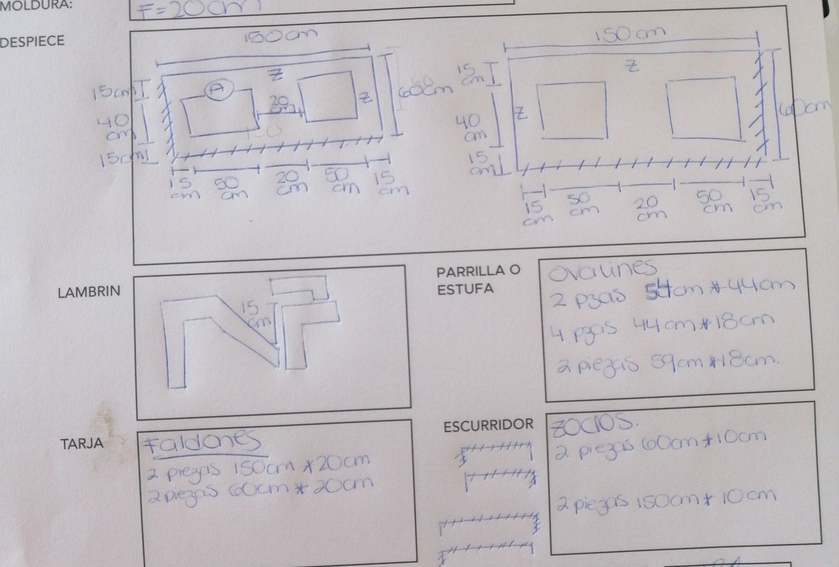 MOLDURA:
F=20cm
DESPIECE
150cm
15cm
40
cm
15cm
Z
A
20
cm
Z
60cm
15
cm
50
cm
20
cm
50
cm
15
cm
150cm
15
cm
40
cm
15
cm
Z
Z
60cm
15
cm
50
cm
20
cm
50
cm
15
cm
LAMBRIN
15
cm
PARRILLA O
ESTUFA
Ovalines
2 pzas 54cm*44cm
4 pzas 44cm*18cm
2 piezas 59cm*18cm.
TARJA
Faldones
2 piezas 150cm*20cm
2 piezas 60cm*20cm
ESCURRIDOR
ZOClOS.
2 piezas 60cm*10cm
2 piezas 150cm*10cm